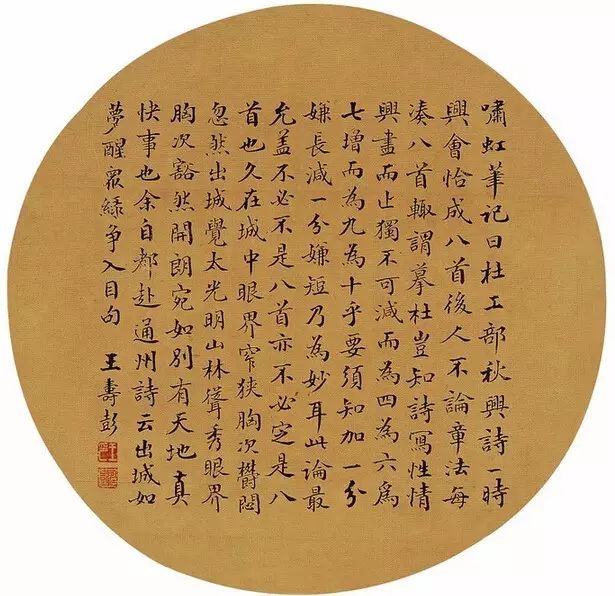 嘯虹筆記曰杜工部秋興詩一時
興會恰成八首後人不論章法每
湊八首輙謂摹杜豈知詩寫性情
興盡而止獨不可減而為四為六為
七增而為九為十乎要須知加一分
嫌長減一分嫌短乃為妙耳此論最
允蓋不必不是八首亦不必定是八
首也久在城中眼界窄狹胸次欝悶
忽然出城覺太光明山林聳秀眼界
胸次豁然開朗宛如別有天地真
快事也余自都赴通州詩云出城如
夢醒眾綠爭入目句 王壽彭